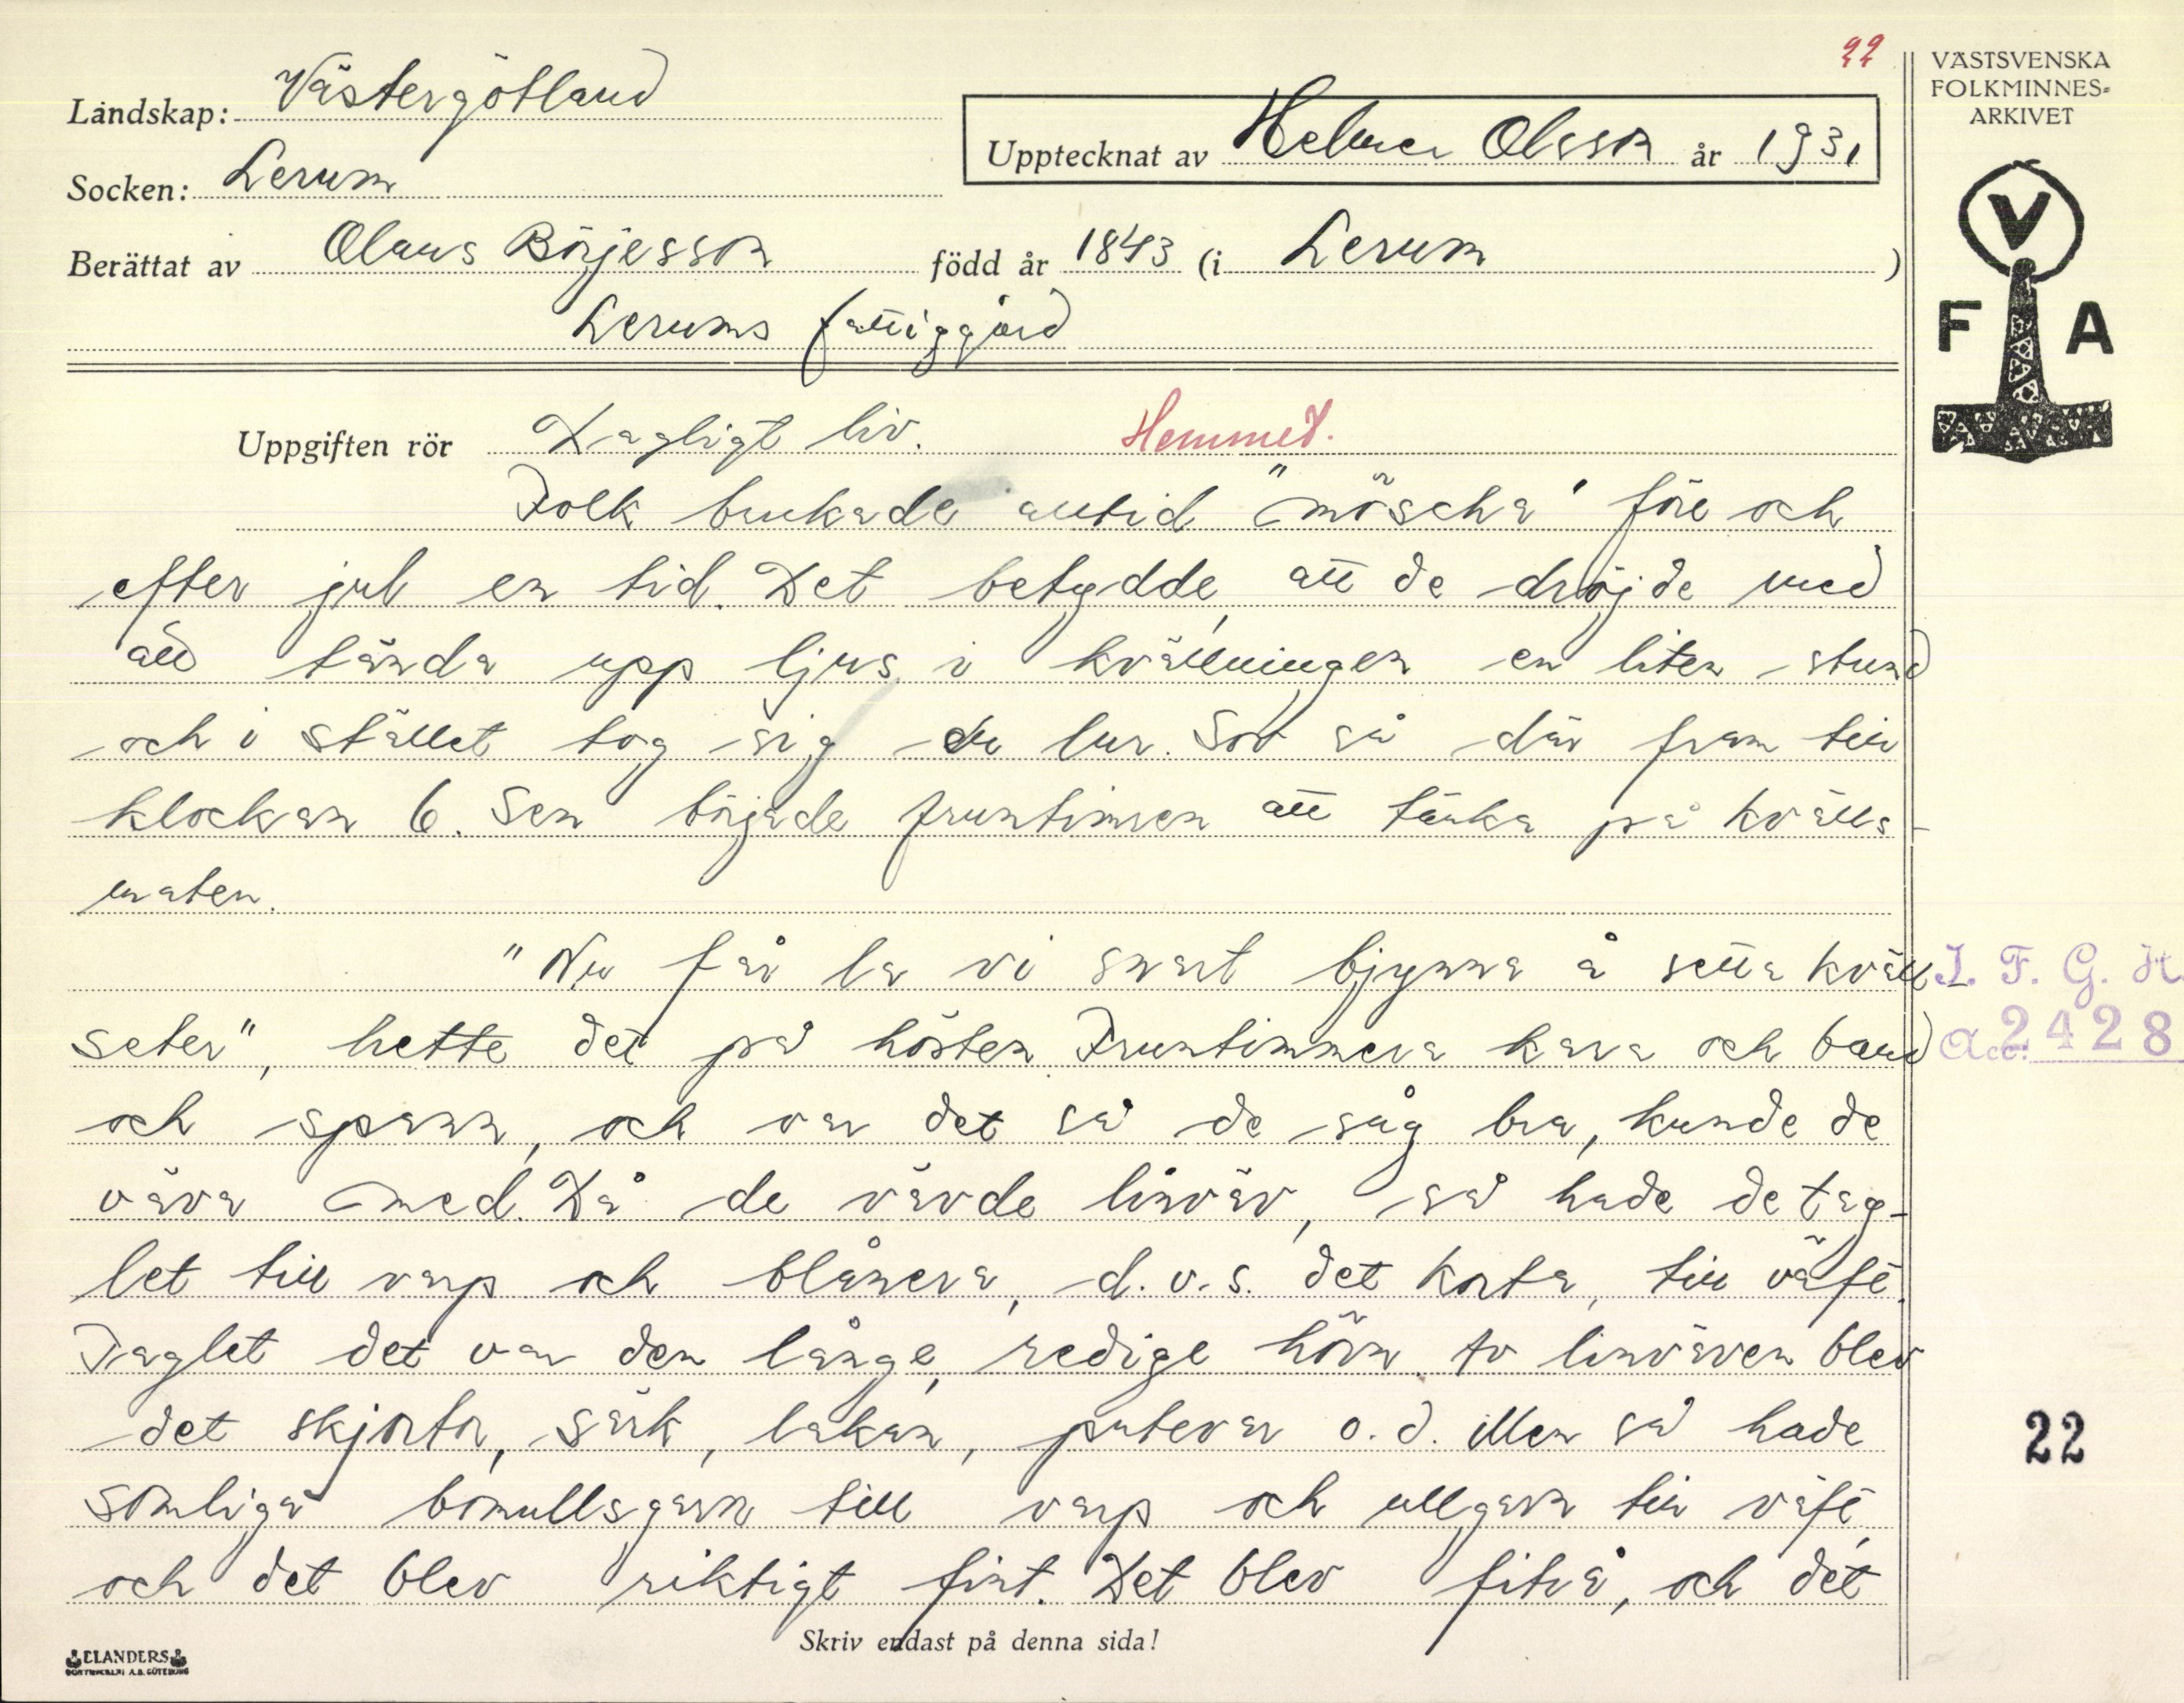 22
VÄSTSVENSKA
FOLKMINNES=
ARKIVET
Landskap: Västergötland
Upptecknat av Helmer Olsson år 1931
Socken: Lerum
Berättat av Olaus Börjesson född år 1843 (i Lerum )
Lerums fattiggård
V
F A
Uppgiften rör Dagligt liv. Hemmet.
Folk brukade alltid "möscha" före och
efter jul en tid. Det betydde, att de dröjde med
att tända upp ljus i kvällningen en liten stund
och i stället tog sig en lur. Sov så där fram till
klockan 6. Sen började fruntimren att tänka på kvälls-
maten.
"Nu får la vi snart bjynna å setta kväll
seter", hette det på hösten. Fruntimmera kara och band
och spann, och var det så de såg bra, kunde de
väva med. Då de vävde linväv, så hade de tag-
let till varp och blånera, d.v.s. det korta, till väft.
Taglet det var den långe, redige hörn. Av linväven blev
det skjortor, särk, lakan, putevar o.d. Men så hade
somliga bomullsgarn till varp och ullgarn till väft,
och det blev riktigt fint. Det blev fitså, och det
I. F. G. H.
Acc. 2428
22
Skriv endast på denna sida!
ELANDERS
BOKTRYCKERI A.B. GÖTEBORG